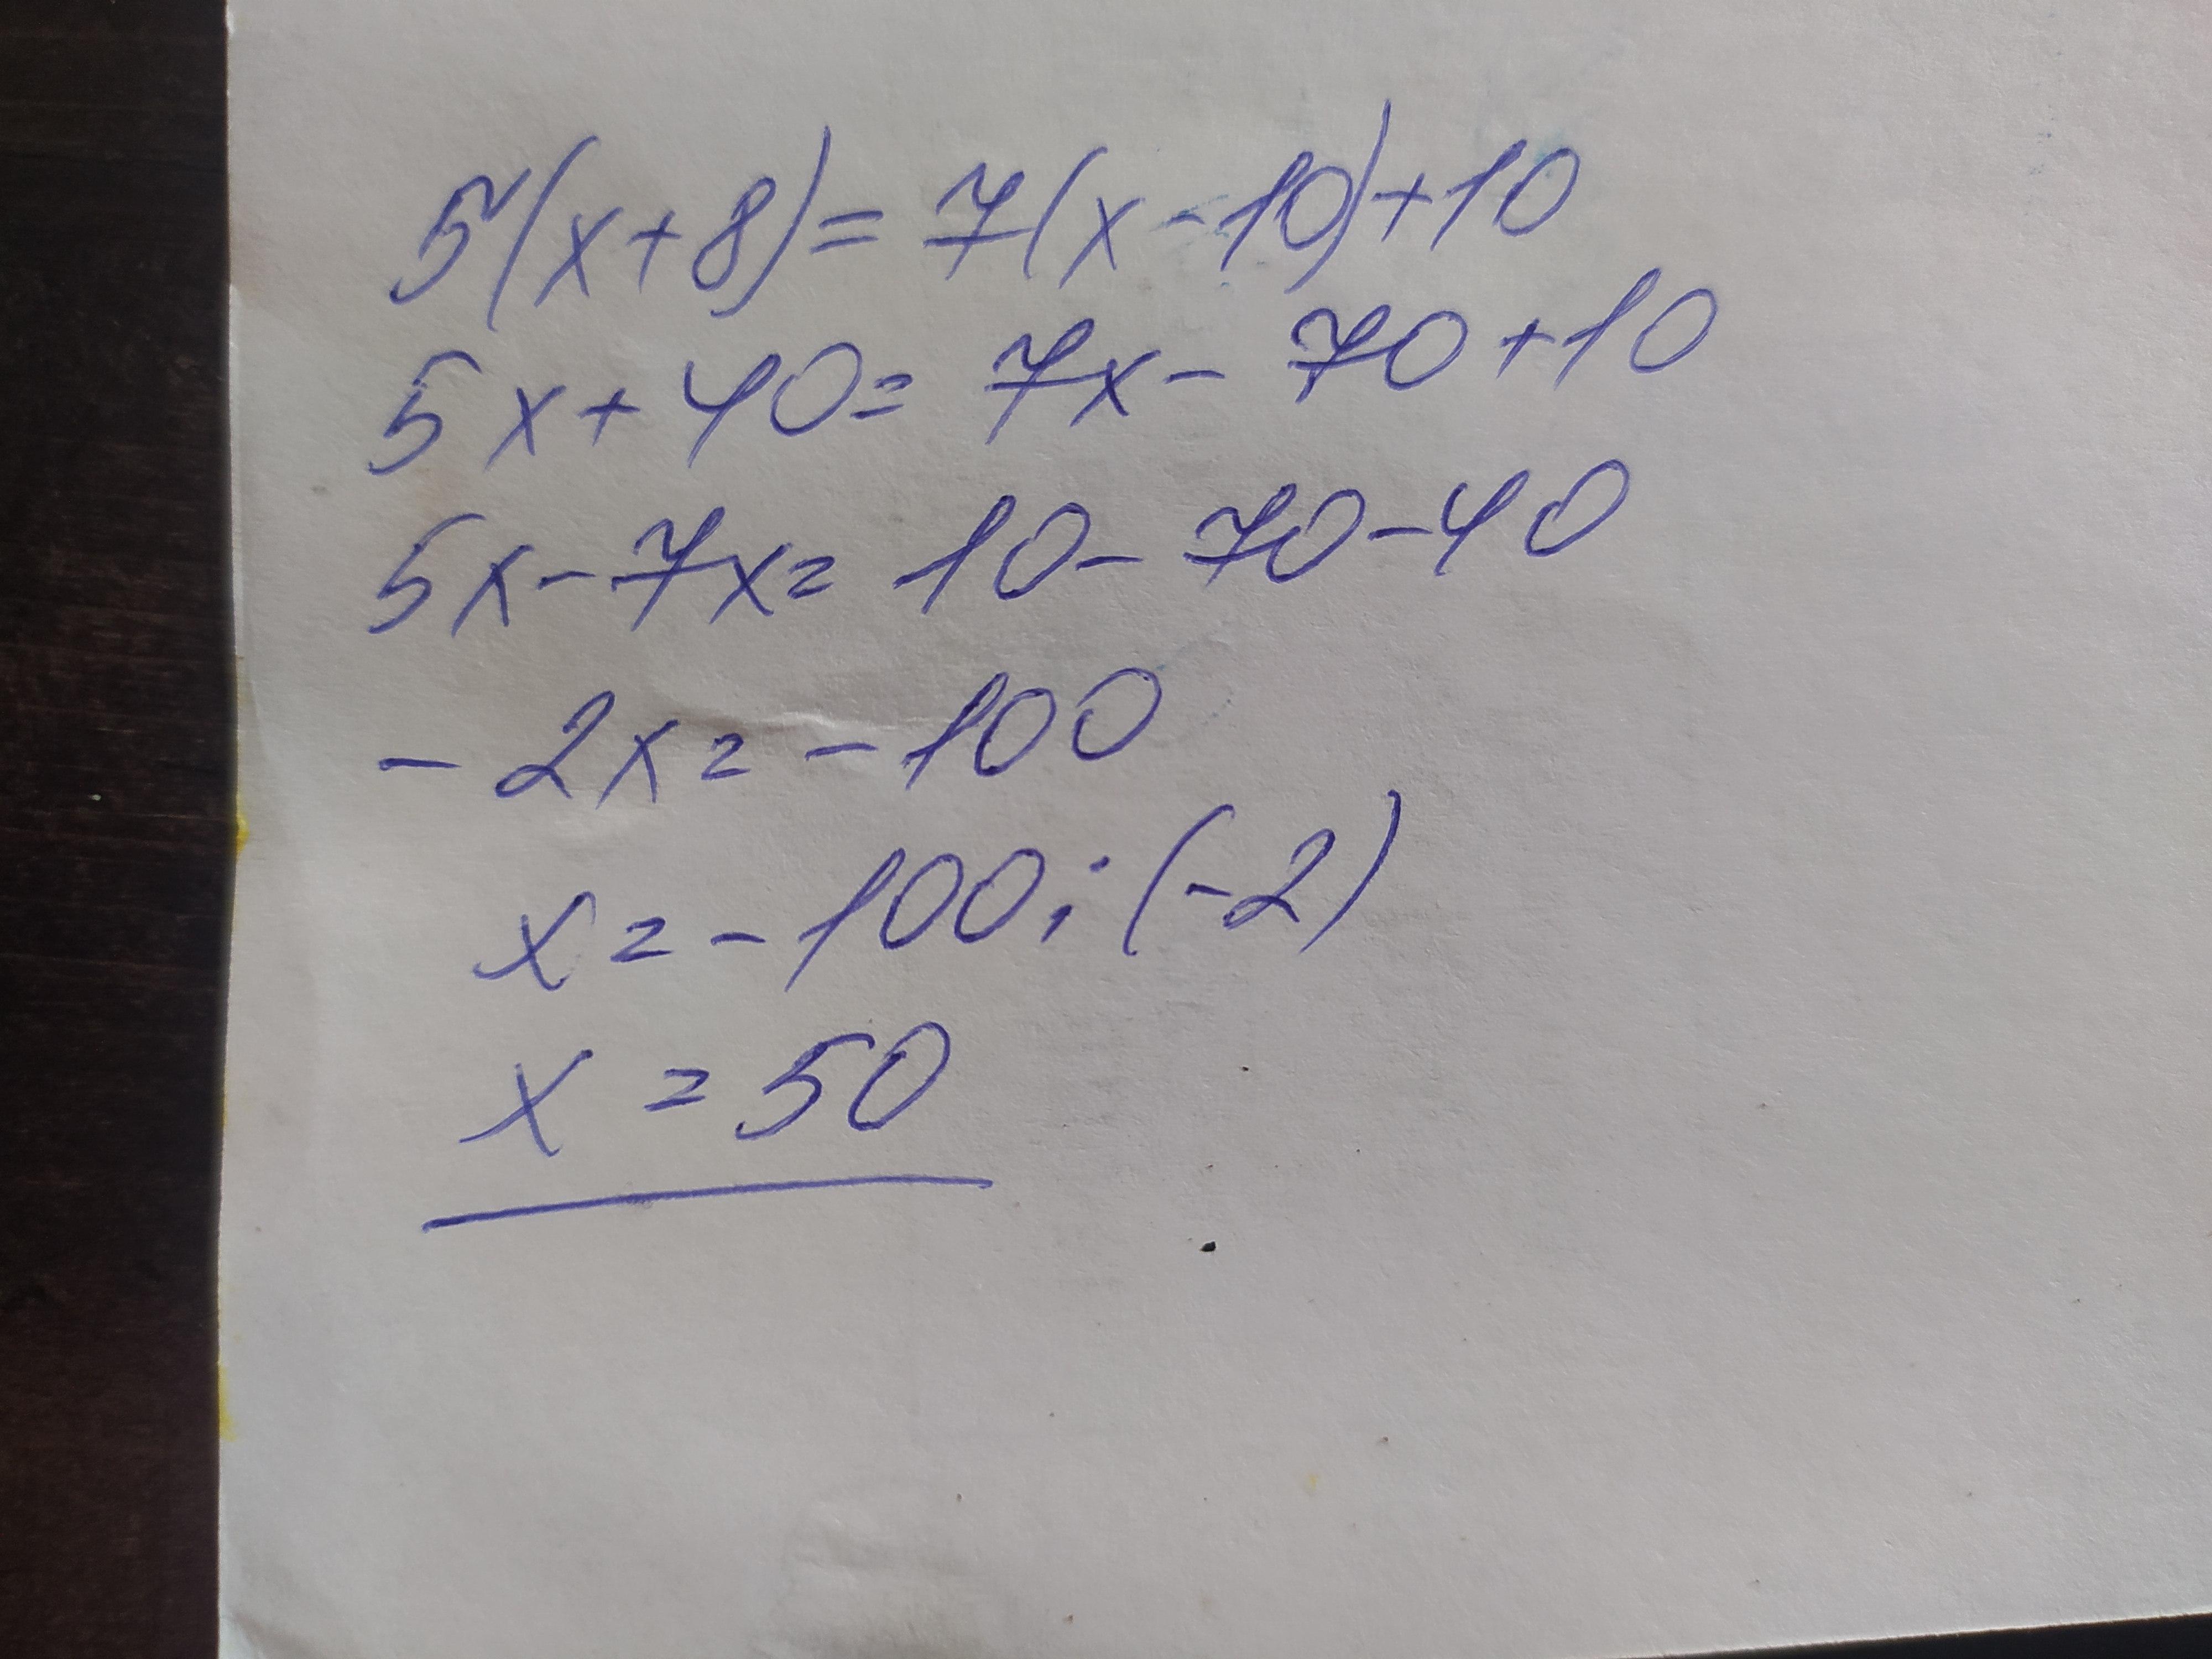 5(x+8)=7(x-10)+10
5x+40=7x-70+10
5x-7x=10-70-40
-2x=-100
x=-100:(-2)
x=50